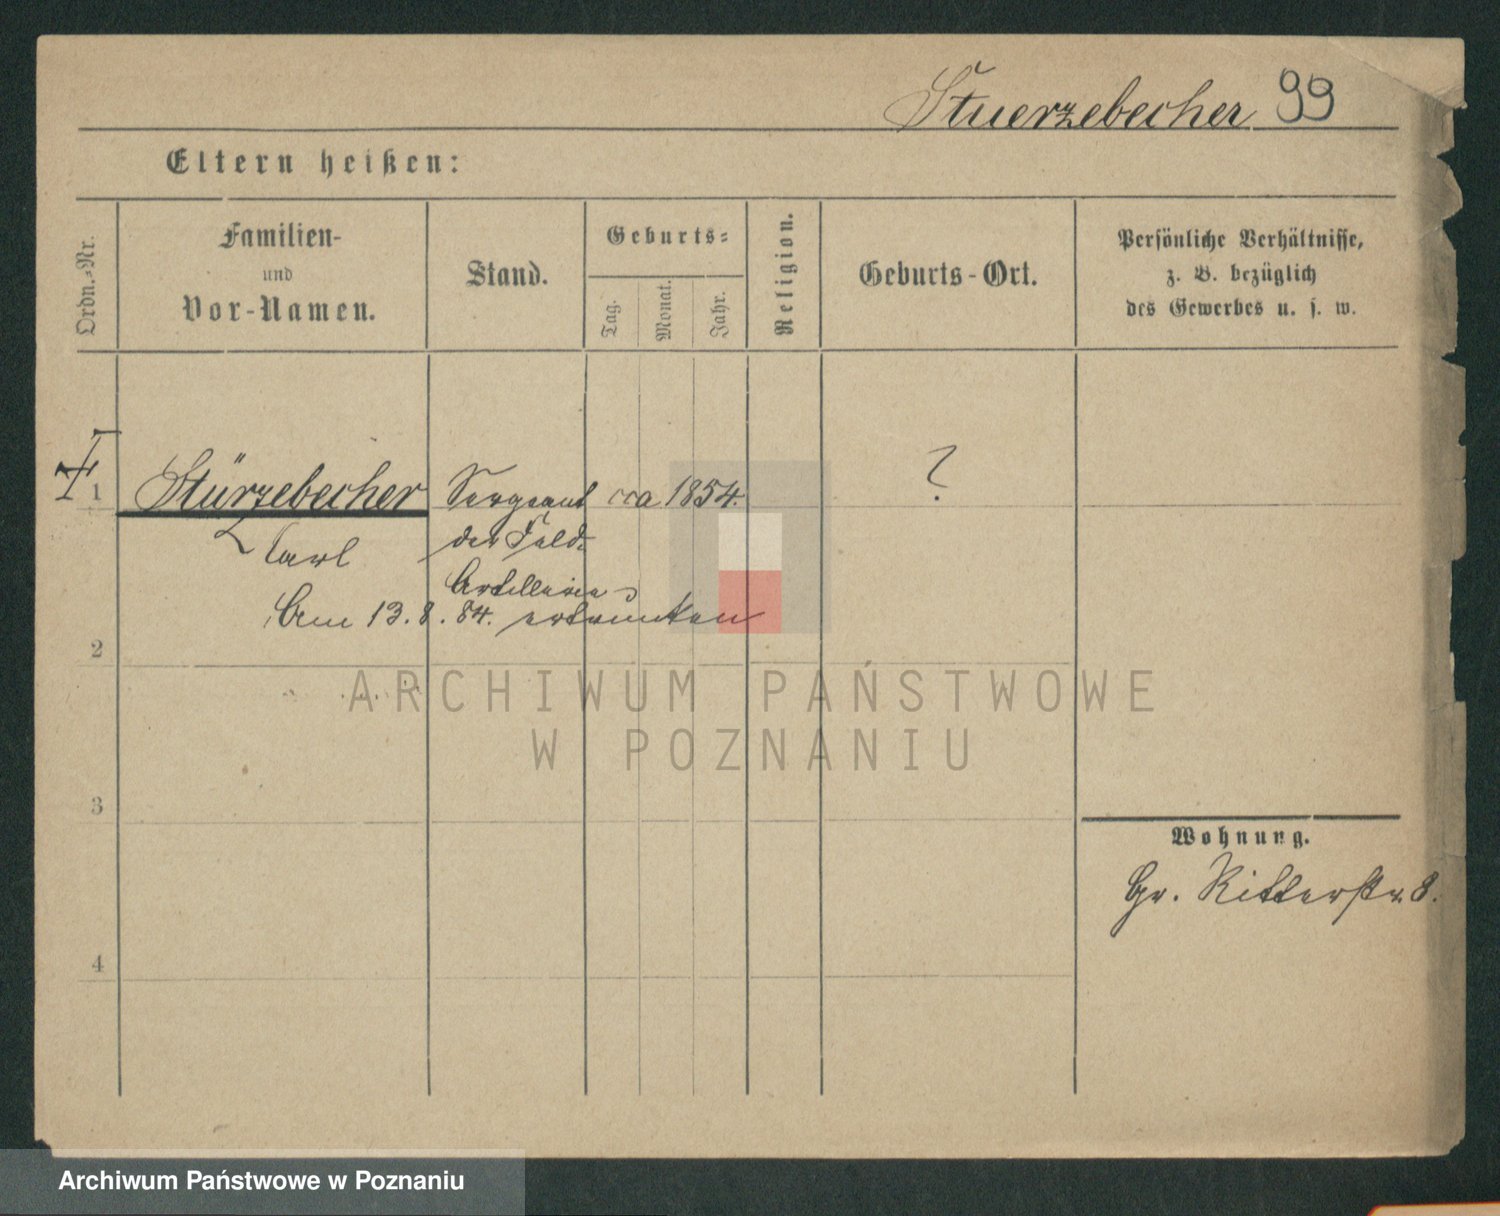 Stuerzebecher 99
Eltern heißen:
Ordn.=Nr.
Familien-
und
Vor-Namen.
Stand.
Geburts=
Tag.
Monat.
Jahr.
Religion.
Geburts-Ort.
Persönliche Verhältnisse,
z. B. bezüglich
des Gewerbes u. s. w.
1
Stürzebecher
Carl
Sergeant
der Feld=
Artillerie
cca 1854.
?
Am 13. 8. 84. ertrunken
2
3
4
Wohnung.
Gr. Ritterstr. 8.
ARCHIWUM PAŃSTWOWE
W POZNANIU
Archiwum Państwowe w Poznaniu